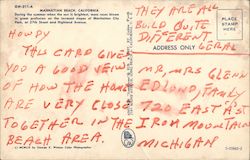 GW-211-A
MANHATTAN BEACH, CALIFORNIA
During the summer when sun is brightest, more roses bloom
in great profusion on the terraced slopes of Manhattan City
Park, at 27th Street and Highland Avenue.
HOWDY
THIS CARD GIVES
YOU A GOOD VEIW
OF HOW THE HOMES
ARE VERY CLOSE
TOGETHER IN THE
BEACH AREA.
THEY ARE ALL
BUILD QUITE
DIFFERENT.
GERAL
PLACE
STAMP
HERE
ADDRESS ONLY
MR, MRS GLENN
EDLOND, FAMILY
720 EAST A ST
IRON MOUNTAIN
MICHIGAN